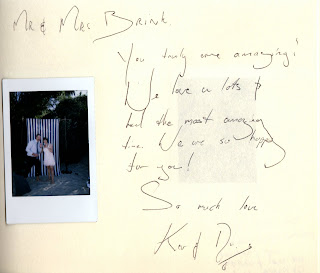 Mr & Mrs Brink.
You truly are amazing!
We love u lots &
had the most amazing
time. We are so happy
for you!
So much love